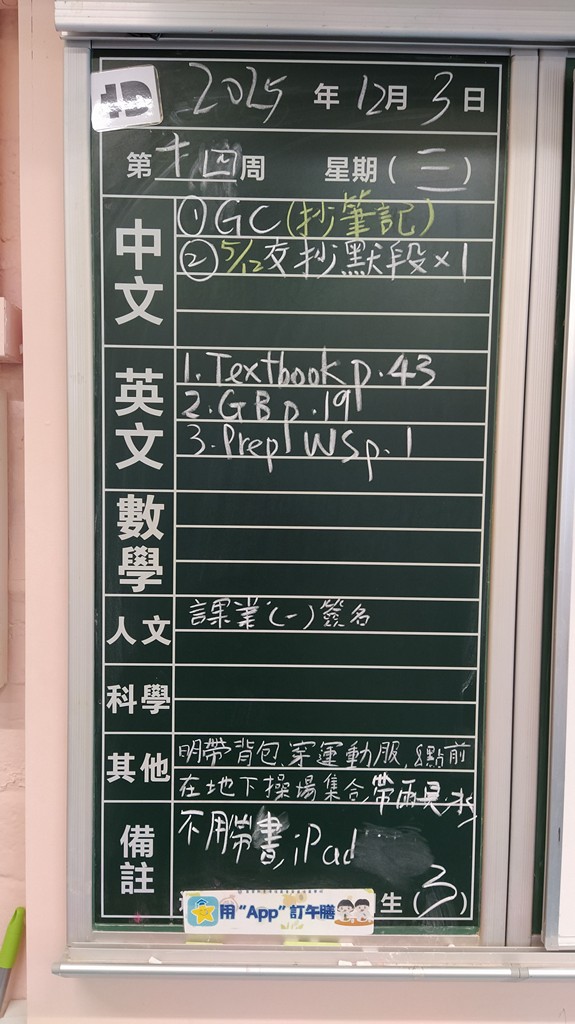 1D
2025 年 12 月 3 日
第 十四 周 星期 ( 三 )
中文
① GC (抄筆記)
② 5/12 交抄默段 x 1
英文
1. Textbook p. 43
2. GB p. 19
3. Prep WS p. 1
數學
人文
課業(一)簽名
科學
其他
明帶背包、穿運動服, 8點前
在地下操場集合, 帶雨具、水
備註
不用帶書, iPad
用 "App" 訂午膳
生 ( 3 )